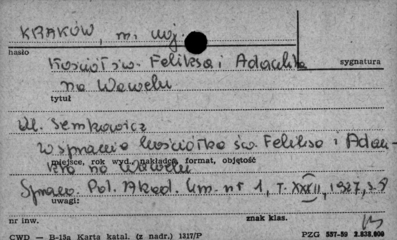 KRAKÓW, m. woj.
hasło
Kościół św. Feliksa i Adaukta
sygnatura
na Wawelu
tytuł
Wł. Semkowicz
W sprawie kościółka św. Feliksa i Adau-
miejsce, rok wyd., nakładca, format, objętość
kta na Wawelu
Spraw. Pol. Akad. Um. nr 1, T. XXXII, 1927, s. 8
uwagi:
nr inw.
znak klas.
CWD — B-13a Karta katal. (z nadr.) 1317/P
PZG 557-59 2.838.000